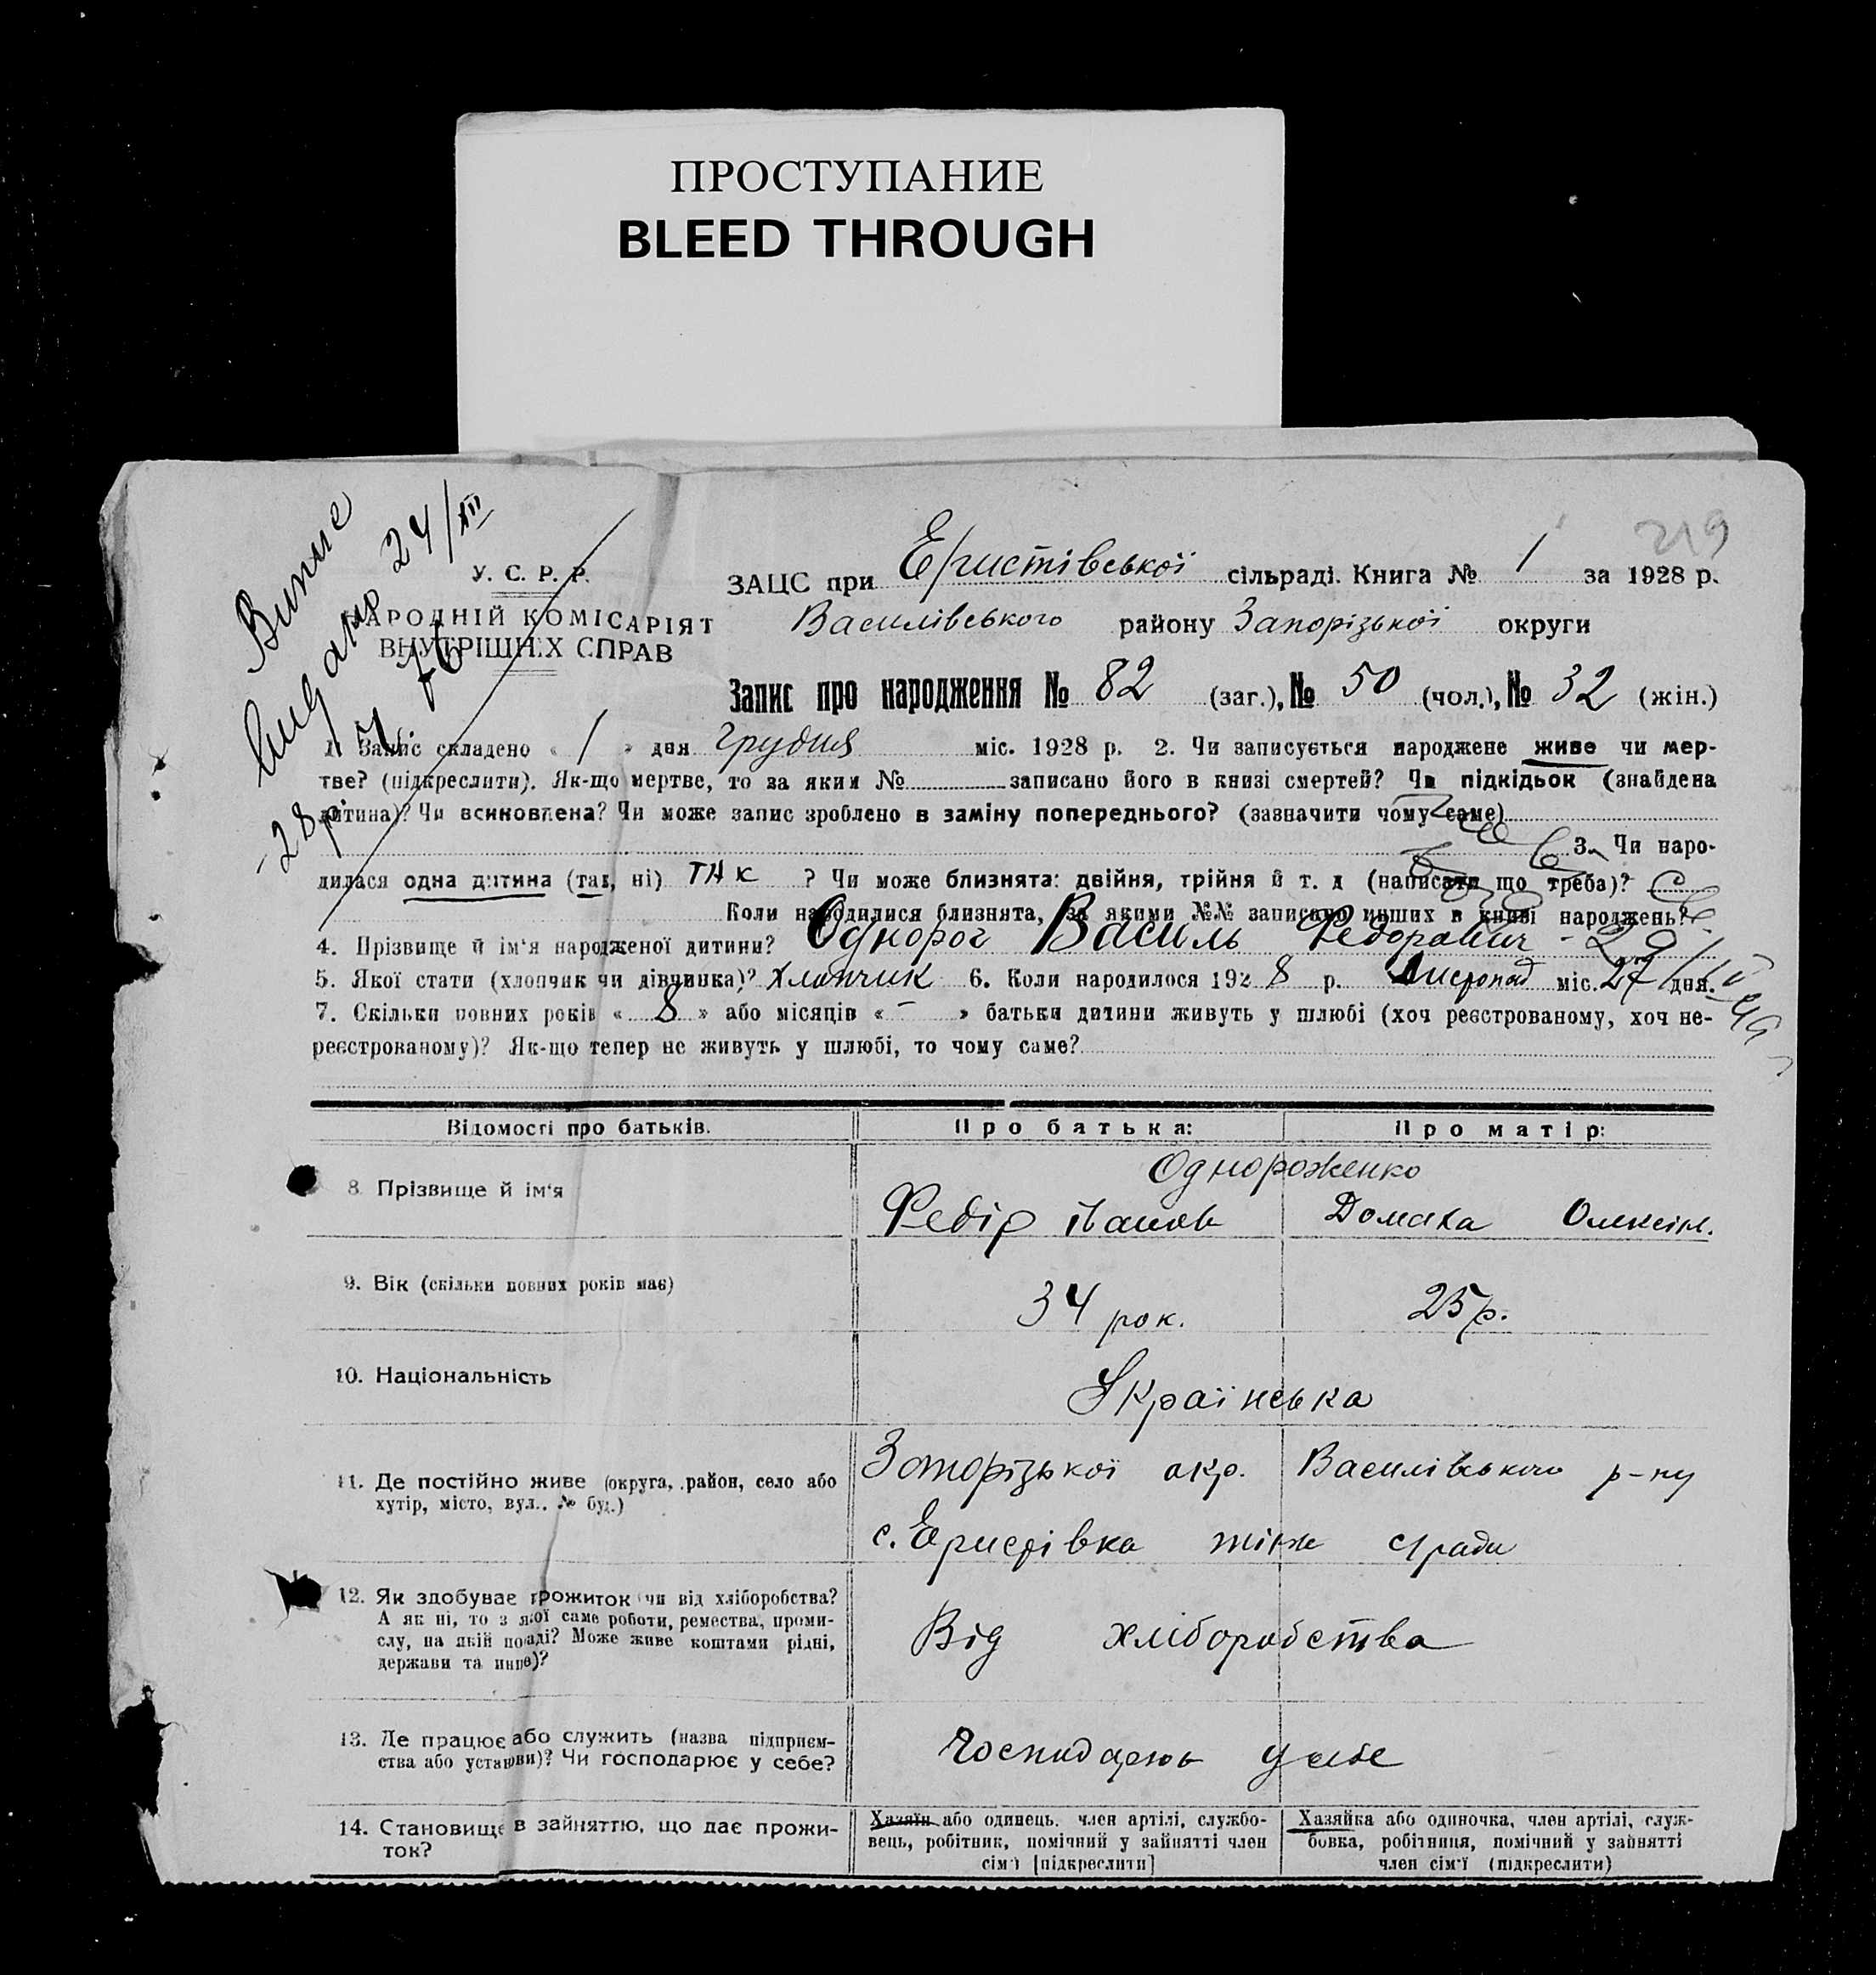 ПРОСТУПАНИЕ
BLEED THROUGH
219
У. С. Р. Р.
НАРОДНІЙ КОМІСАРІЯТ
ВНУТРІШНІХ СПРАВ
24/XII
ЗАЦС при Еристівської сільраді. Книга № 1 за 1928 р.
Василівського району Запорізької округи
Запис про народження № 82 (заг.), № 50 (чол.), № 32 (жін.)
1. Запис складено « 1 » дня грудня міс. 1928 р. 2. Чи записується народжене живе чи мер-
тве? (підкреслити). Як-що мертве, то за яким № записано його в книзі смертей? Чи підкідьок (знайдена
дитина)? Чи всиновлена? Чи може запис зроблено в заміну попереднього? (зазначити чому саме)
3. Чи наро-
дилася одна дитина (так, ні) так ? Чи може близнята: двійня, трійня й т. д (написати що треба)?
Коли народилися близнята, за якими №№ записано инших в книзі народжень?
4. Прізвище й ім'я народженої дитини? Однорог Василь Федорович
5. Якої стати (хлопчик чи дівчинка)? хлопчик 6. Коли народилося 1928 р. Листопад міс. 27 дня.
7. Скільки повних років « 8 » або місяців « – » батьки дитини живуть у шлюбі (хоч реєстрованому, хоч не-
реєстрованому)? Як-що тепер не живуть у шлюбі, то чому саме?
Відомості про батьків. Про батька: Про матір:
Однороженко
8. Прізвище й ім'я Федір Іванов Домаха Олексіїв.
9. Вік (скільки повних років має) 34 рок. 25 р.
10. Національність Українська
11. Де постійно живе (округа, район, село або
хутір, місто, вул., № буд.)
Запорізької окр. Василівського р-ну
с. Еристівка тіїж с/ради
12. Як здобуває прожиток чи від хліборобства?
А як ні, то з якої саме роботи, ремества, проми-
слу, на якій посаді? Може живе коштами рідні,
держави та инше)?
Від хліборобства
13. Де працює або служить (назва підприєм-
ства або установи)? Чи господарює у себе?
Господарює у себе
14. Становище в зайняттю, що дає прожи-
ток?
Хазяїн або одинець, член артілі, службо-
вець, робітник, помічний у зайнятті член
сім'ї [підкреслити]
Хазяйка або одиночка, член артілі, служ-
бовка, робітниця, помічний у зайнятті
член сім'ї (підкреслити)